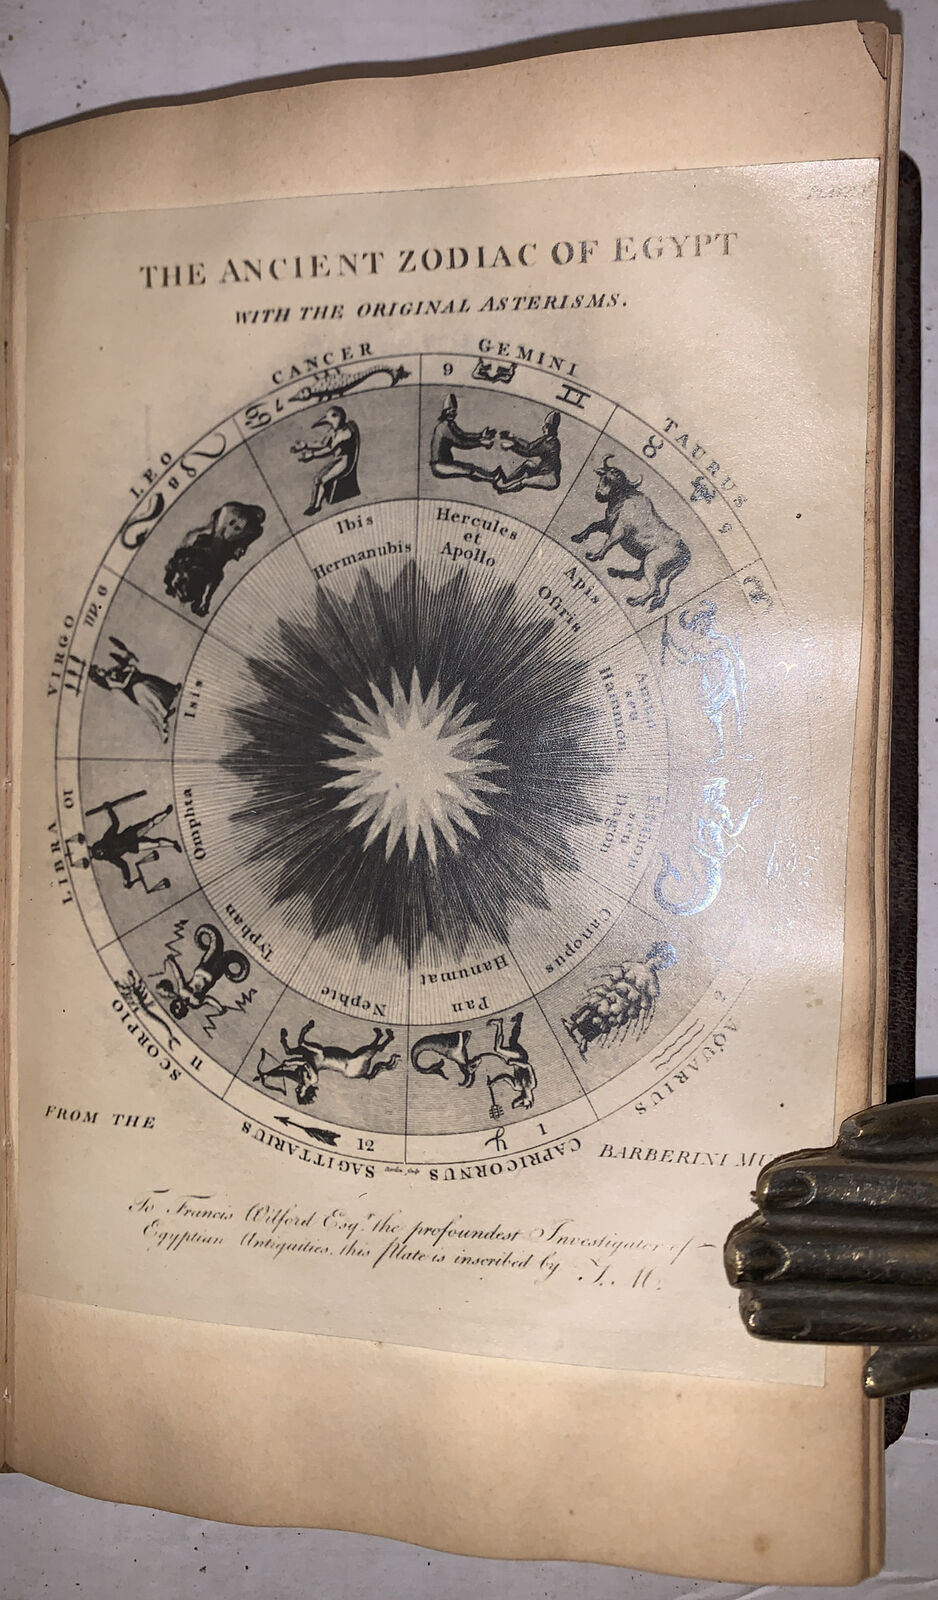 THE ANCIENT ZODIAC OF EGYPT
WITH THE ORIGINAL ASTERISMS.
CANCER
GEMINI
TAURUS
LEO
VIRGO
LIBRA
SCORPIO
SAGITTARIUS
CAPRICORNUS
AQUARIUS
7
9
8
6
10
11
12
1
2
Ibis
Hermanubis
Hercules
et
Apollo
Apis
Osiris
Dagon
Canopus
Hanumat
Pan
Nephte
Typhan
Omphta
Isis
FROM THE
BARBERINI MU
To Francis Wilford Esqr. the profoundest Investigator of
Egyptian Antiquities, this Plate is inscribed by T. M.